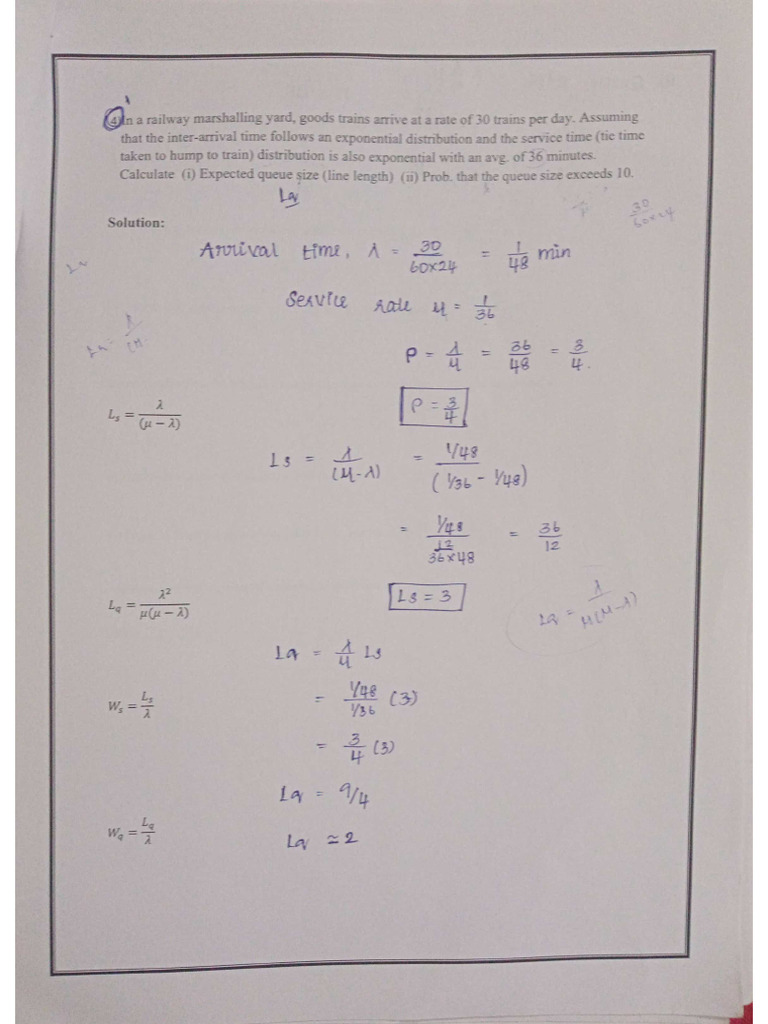 4) In a railway marshalling yard, goods trains arrive at a rate of 30 trains per day. Assuming
that the inter-arrival time follows an exponential distribution and the service time (tie time
taken to hump to train) distribution is also exponential with an avg. of 36 minutes.
Calculate (i) Expected queue size (line length) (ii) Prob. that the queue size exceeds 10.
Lq
30/60×24
Solution:
Arrival time, λ = 30/60×24 = 1/48 min
Service rate μ = 1/36
ρ = λ/μ = 36/48 = 3/4.
ρ = 3/4
Ls = λ/(μ − λ)
Ls = λ/(μ-λ) = 1/48/(1/36 - 1/48)
= 1/48/12/36×48 = 36/12
Ls = 3
Lq = λ²/μ(μ − λ)
Lq = λ/μ(μ-λ)
Lq = λ/μ Ls
= 1/48/1/36 (3)
Ws = Ls/λ
= 3/4 (3)
Lq = 9/4
Wq = Lq/λ
Lq ≃ 2